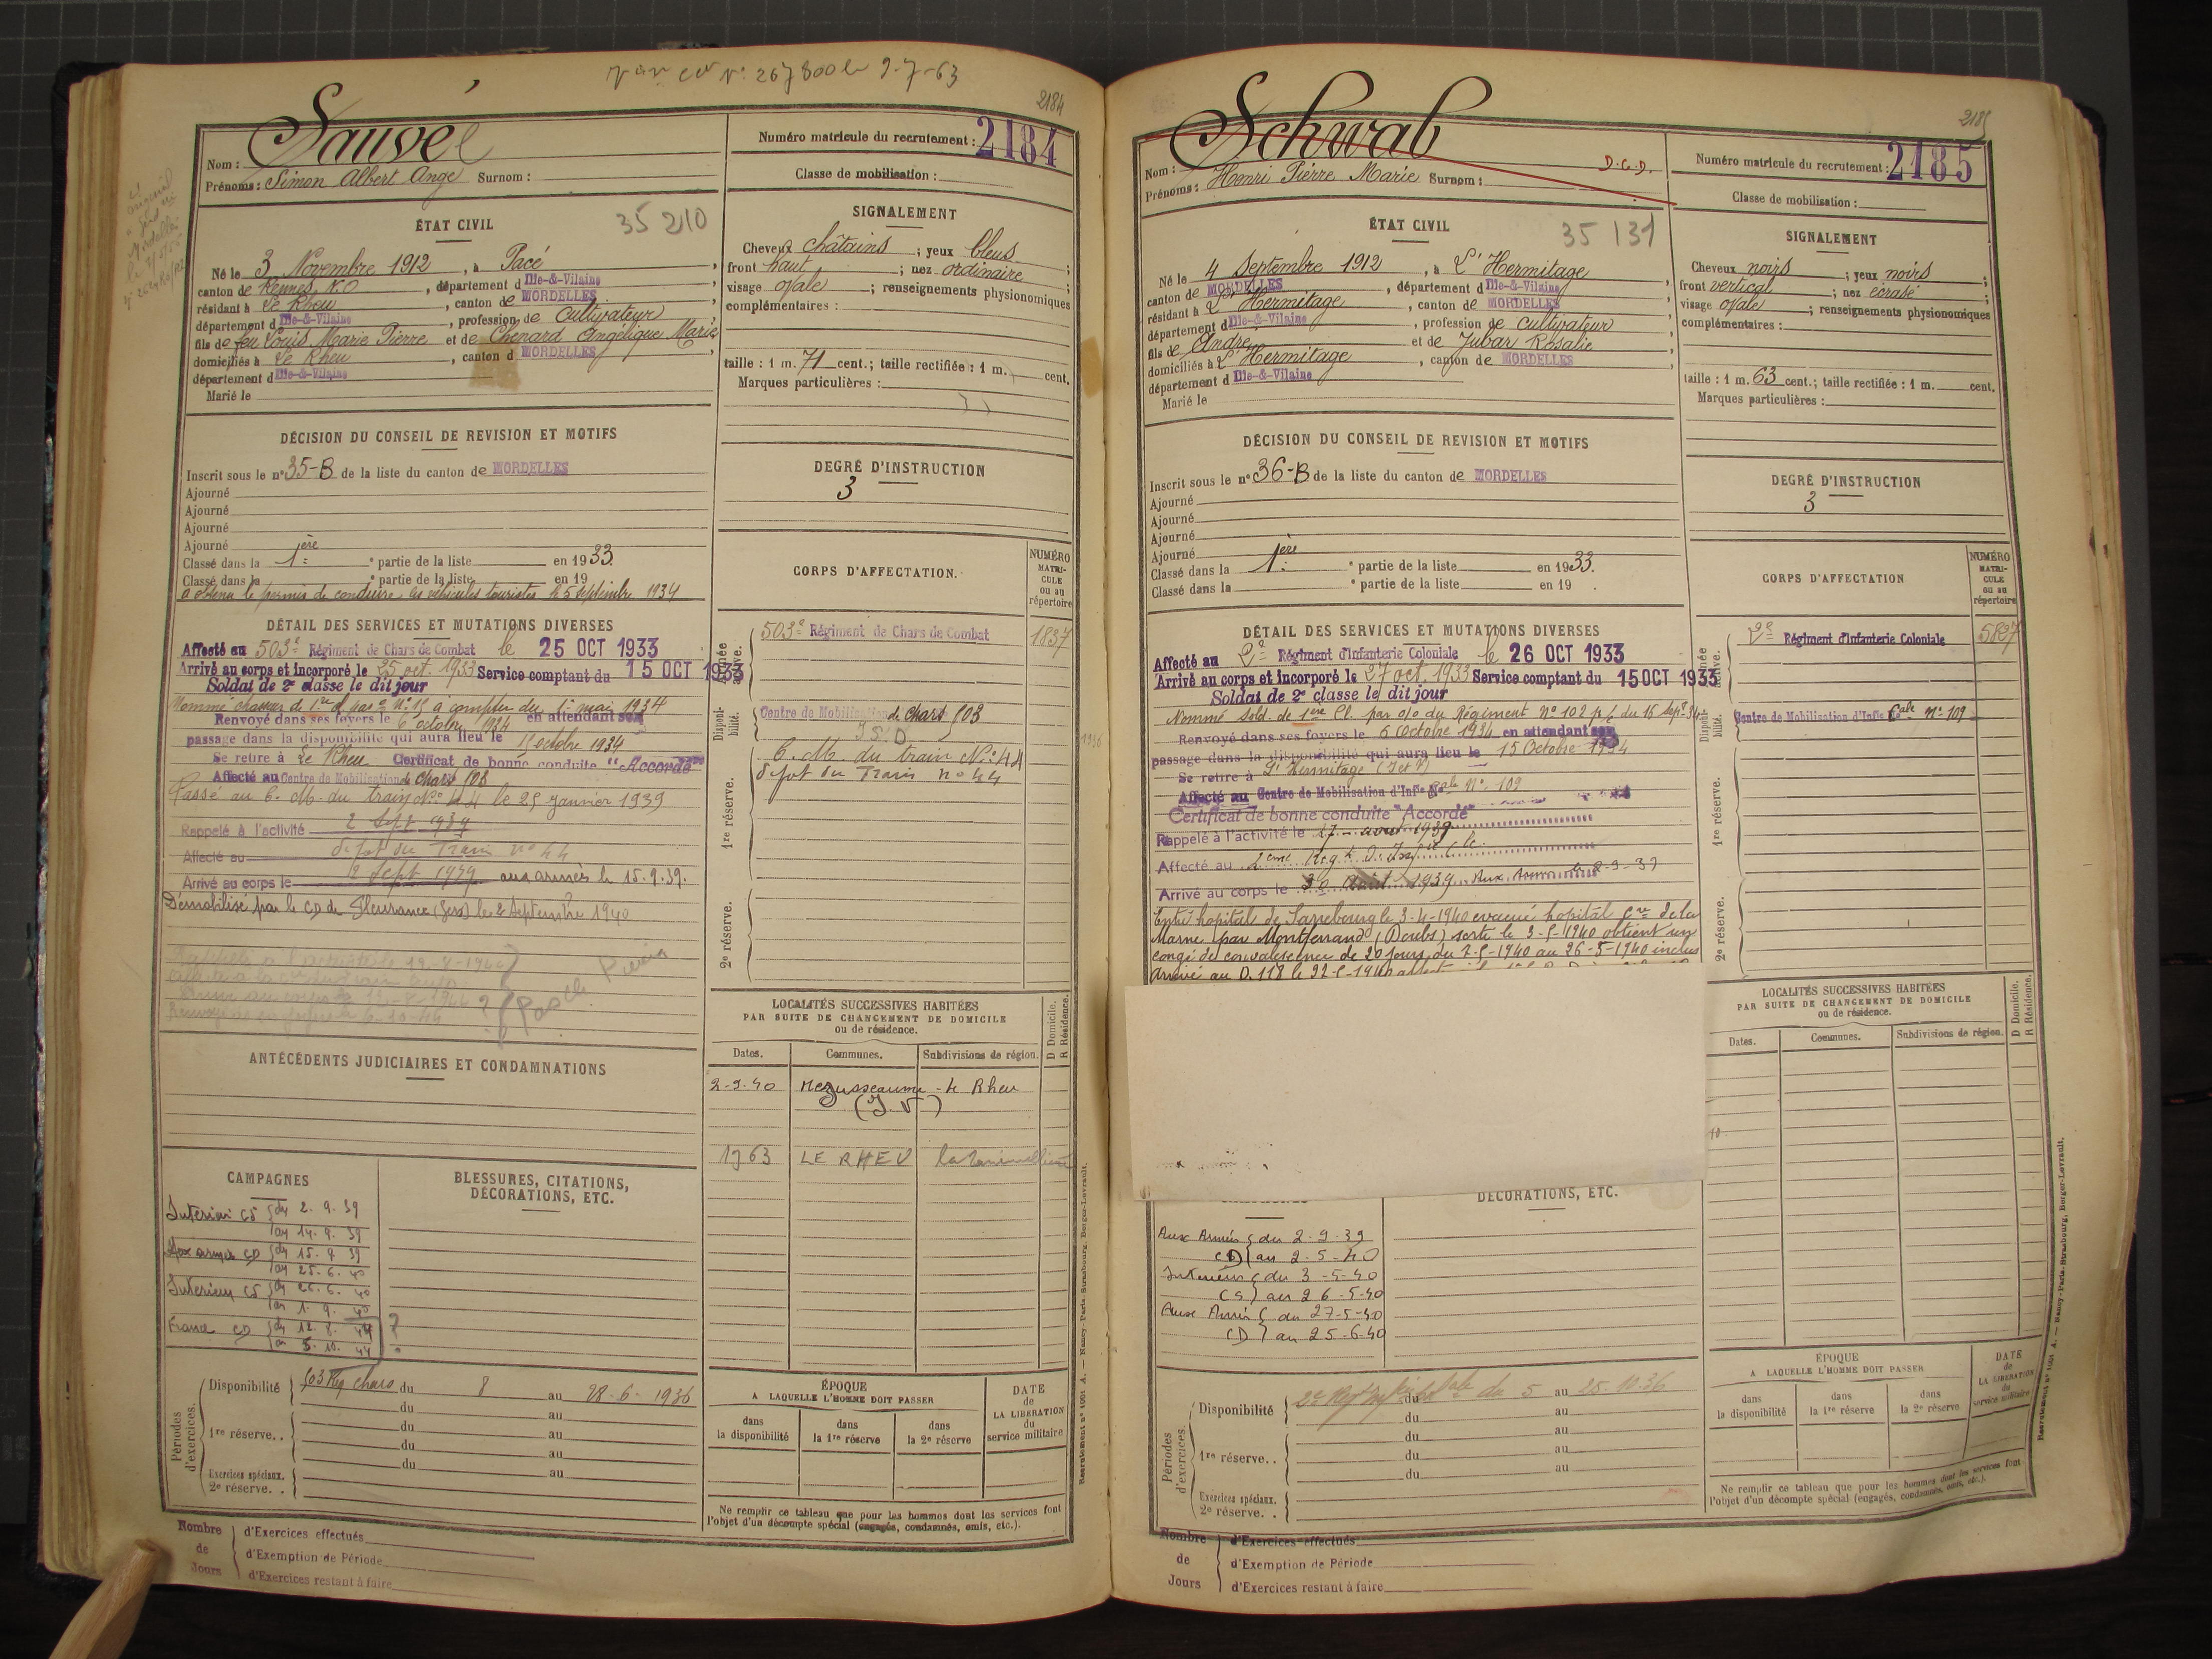 Vu cer N° 267800 le 9-7-63
2184
Nom : Sauvé
Prénoms : Simon Albert Ange Surnom :
Numéro matricule du recrutement : 2184
Classe de mobilisation :
ÉTAT CIVIL
35 210
Né le 3 Novembre 1912, à Pacé,
canton de Rennes N.O, département d Ille-&-Vilaine
résidant à Le Rheu, canton de MORDELLES,
département d Ille-&-Vilaine, profession de Cultivateur
fils de feu Louis Marie Pierre et de Chenard Angélique Marie,
domiciliés à Le Rheu, canton d MORDELLES,
département d Ille-&-Vilaine
Marié le
SIGNALEMENT
Cheveux châtains ; yeux bleus ;
front haut ; nez ordinaire ;
visage ovale ; renseignements physionomiques
complémentaires :
taille : 1 m. 71 cent.; taille rectifiée : 1 m. cent.
Marques particulières :
DÉCISION DU CONSEIL DE REVISION ET MOTIFS
Inscrit sous le n° 35-B de la liste du canton de MORDELLES
Ajourné
Ajourné
Ajourné
Ajourné
Classé dans la 1ère partie de la liste en 1933.
Classé dans la partie de la liste en 19
a obtenu le permis de conduire les véhicules touristes le 5 septembre 1934
DEGRÉ D'INSTRUCTION
3
CORPS D'AFFECTATION.
NUMÉRO MATRI-CULE ou au répertoire
Armée active.
503e Régiment de Chars de Combat 1837
Disponi-bilité.
Centre de Mobilisation de chars 503
1re réserve.
C. M. du train N° 44
dépot du Train no 44
2e réserve.
DÉTAIL DES SERVICES ET MUTATIONS DIVERSES
Affecté au 503e Régiment de Chars de Combat le 25 OCT 1933
Arrivé au corps et incorporé le 25 oct. 1933 Service comptant du 15 OCT 1933
Soldat de 2e classe le dit jour
Nommé chasseur de 1re cl. par o. N° 15 à compter du 1er mai 1934
Renvoyé dans ses foyers le 6 octobre 1934 en attendant son
passage dans la disponibilité qui aura lieu le 15 octobre 1934
Se retire à Le Rheu Certificat de bonne conduite "Accordé"
Affecté au Centre de Mobilisation de chars 503
Passé au C. M. du train N° 44 le 25 janvier 1939
Rappelé à l'activité 2 Sept 1939
Affecté au dépot du Train no 44
Arrivé au corps le 2 Sept 1939 aux armées le 15.9.39.
Démobilisé par le CD de Fleurance (Gers) le 2 Septembre 1940
ANTÉCÉDENTS JUDICIAIRES ET CONDAMNATIONS
LOCALITÉS SUCCESSIVES HABITÉES
PAR SUITE DE CHANGEMENT DE DOMICILE
ou de résidence.
Dates. Communes. Subdivisions de région. D Domicile. R Résidence.
2-9-40 Mezusseaume - Le Rheu
(I.V)
1963 LE RHEU
CAMPAGNES
Intérieur CS du 2. 9. 39
au 14. 9. 39
Aux armées CD du 15. 9. 39
au 25. 6. 40
Intérieur CS du 26. 6. 40
au 1. 9. 40
France CD du 12. 8. 44
au 5. 10. 44 ?
BLESSURES, CITATIONS,
DÉCORATIONS, ETC.
Périodes d'exercices.
Disponibilité 503 Reg chars du 8 au 28-6-1936
du au
1re réserve.. du au
du au
du au
Exercices spéciaux.
2e réserve. .
ÉPOQUE
A LAQUELLE L'HOMME DOIT PASSER
dans la disponibilité
dans la 1re réserve
dans la 2e réserve
DATE de LA LIBERATION du service militaire
Ne remplir ce tableau que pour les hommes dont les services font
l'objet d'un décompte spécial (engagés, condamnés, omis, etc.).
Nombre de Jours
d'Exercices effectués
d'Exemption de Période
d'Exercices restant à faire
Recrutement n° 1091 A. — Nancy-Paris-Strasbourg, Berger-Levrault.
2185
Nom : Schwab
D.C.D.
Prénoms : Henri Pierre Marie Surnom :
Numéro matricule du recrutement : 2185
Classe de mobilisation :
ÉTAT CIVIL
35 131
Né le 4 Septembre 1912, à L'Hermitage
canton de MORDELLES, département d Ille-&-Vilaine
résidant à L'Hermitage, canton de MORDELLES
département d Ille-&-Vilaine, profession de cultivateur
fils de André et de Jubar Rosalie
domiciliés à L'Hermitage, canton de MORDELLES,
département d Ille-&-Vilaine
Marié le
SIGNALEMENT
Cheveux noirs ; yeux noirs ;
front vertical ; nez écrasé ;
visage ovale ; renseignements physionomiques
complémentaires :
taille : 1 m. 63 cent.; taille rectifiée : 1 m. cent.
Marques particulières :
DÉCISION DU CONSEIL DE REVISION ET MOTIFS
Inscrit sous le n° 36-B de la liste du canton de MORDELLES
Ajourné
Ajourné
Ajourné
Ajourné
Classé dans la 1ère partie de la liste en 1933.
Classé dans la partie de la liste en 19 .
DEGRÉ D'INSTRUCTION
3
CORPS D'AFFECTATION
NUMÉRO MATRI-CULE ou au répertoire
Armée active.
2e Régiment d'Infanterie Coloniale 5827
Disponi-bilité.
Centre de Mobilisation d'Infie Cale N° 109
1re réserve.
2e réserve.
DÉTAIL DES SERVICES ET MUTATIONS DIVERSES
Affecté au 2e Régiment d'Infanterie Coloniale le 26 OCT 1933
Arrivé au corps et incorporé le 27 oct. 1933 Service comptant du 15 OCT 1933
Soldat de 2e classe le dit jour
Nommé Sold. de 1ère Cl. par o/o du Régiment N° 102 p/c du 16 Sepbre 34
Renvoyé dans ses foyers le 6 Octobre 1934 en attendant son
passage dans la disponibilité qui aura lieu le 15 Octobre 1934
Se retire à L'Hermitage (I et V)
Affecté au Centre de Mobilisation d'Infie Cale N° 109
Certificat de bonne conduite "Accordé"
Rappelé à l'activité le 27 août 1939
Affecté au 2eme Regt d'Infie Cle
Arrivé au corps le 30 Août 1939. Aux Armées le 2-9-39
Entré hopital de Sarrebourg le 3-4-1940 evacué hopital Cre de la
Marne par Montferrand (Doubs) sorti le 3-5-1940 obtient un
congé de convalescence de 20 jours du 7-5-1940 au 26-5-1940 inclus
Arrivé au D. 118 le 22-5-1940
LOCALITÉS SUCCESSIVES HABITÉES
PAR SUITE DE CHANGEMENT DE DOMICILE
ou de résidence.
Dates. Communes. Subdivisions de région. D Domicile. R Résidence.
DÉCORATIONS, ETC.
Aux Armées du 2-9-39
CD au 2-5-40
Intérieur du 3-5-40
CS au 26-5-40
Aux Armées du 27-5-40
CD au 25-6-40
Périodes d'exercices.
Disponibilité du 5 au 25.10.36
du au
1re réserve.. du au
du au
du au
Exercices spéciaux.
2e réserve. .
ÉPOQUE
A LAQUELLE L'HOMME DOIT PASSER
dans la disponibilité
dans la 1re réserve
dans la 2e réserve
DATE de LA LIBERATION du service militaire
Ne remplir ce tableau que pour les hommes dont les services font
l'objet d'un décompte spécial (engagés, condamnés, omis, etc.).
Nombre de Jours
d'Exercices effectués
d'Exemption de Période
d'Exercices restant à faire
Recrutement n° 1091 A. — Nancy-Paris-Strasbourg, Berger-Levrault.